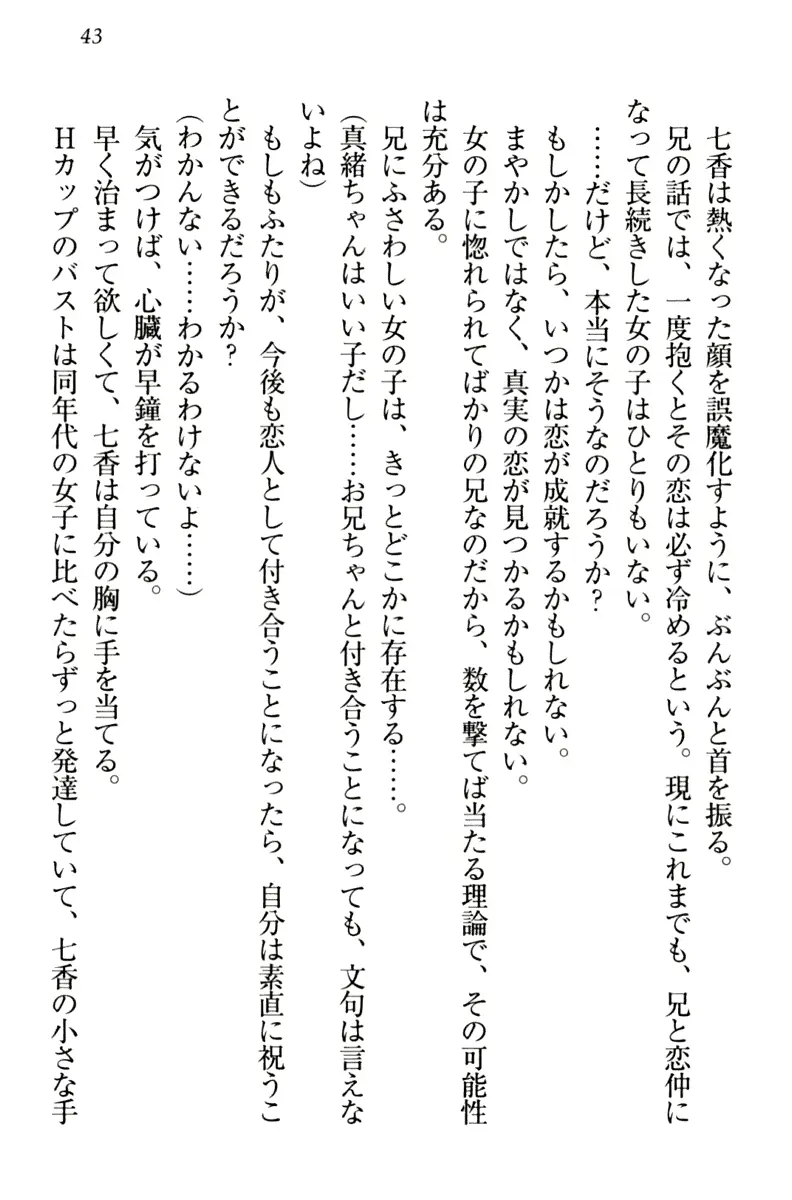 43
七香は熱くなった顔を誤魔化すように、ぶんぶんと首を振る。
兄の話では、一度抱くとその恋は必ず冷めるという。現にこれまでも、兄と恋仲に
なって長続きした女の子はひとりもいない。
……だけど、本当にそうなのだろうか?
もしかしたら、いつかは恋が成就するかもしれない。
まやかしではなく、真実の恋が見つかるかもしれない。
女の子に惚れられてばかりの兄なのだから、数を撃てば当たる理論で、その可能性
は充分ある。
兄にふさわしい女の子は、きっとどこかに存在する……。
(真緒ちゃんはいい子だし……お兄ちゃんと付き合うことになっても、文句は言えな
いよね)
もしもふたりが、今後も恋人として付き合うことになったら、自分は素直に祝うこ
とができるだろうか?
(わかんない……わかるわけないよ……)
気がつけば、心臓が早鐘を打っている。
早く治まって欲しくて、七香は自分の胸に手を当てる。
Hカップのバストは同年代の女子に比べたらずっと発達していて、七香の小さな手